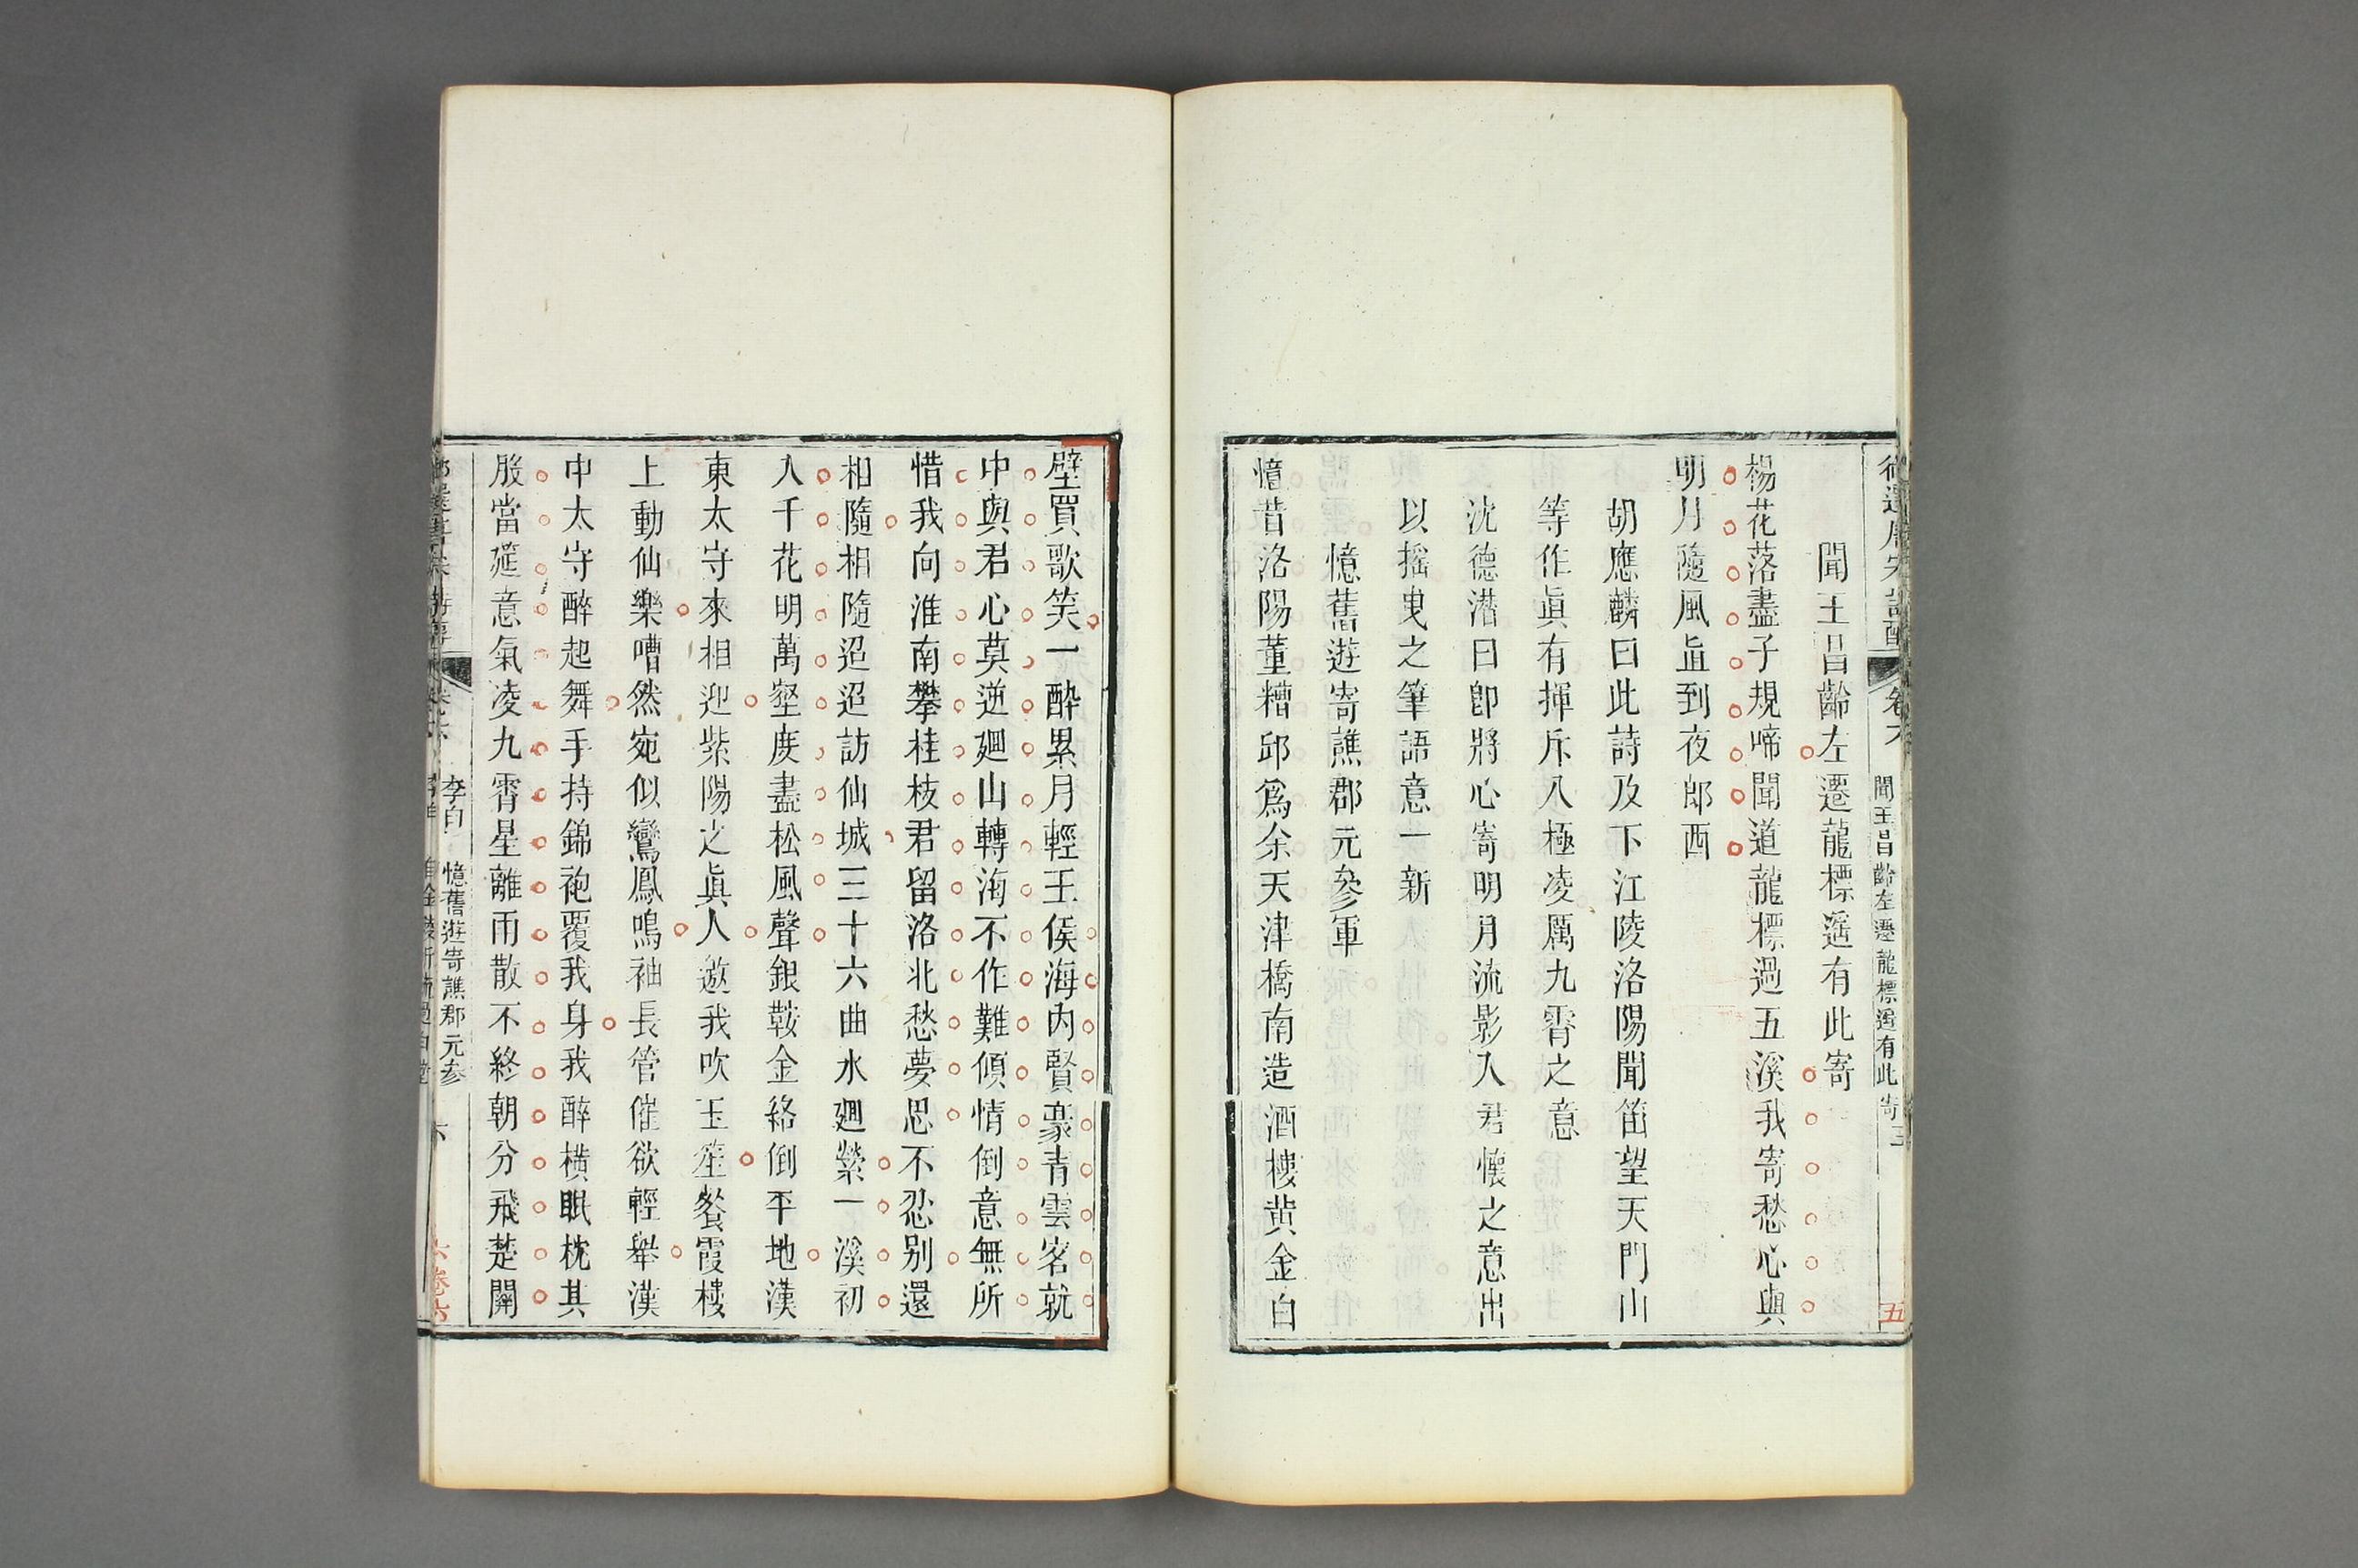 御選唐宋詩醇 卷六 聞王昌齡左遷龍標遥有此寄 五
聞王昌齡左遷龍標遥有此寄
楊花落盡子規啼聞道龍標過五溪我寄愁心與
明月隨風直到夜郎西
胡應麟曰此詩及下江陵洛陽聞笛望天門山
等作眞有揮斥八極凌厲九霄之意
沈德潛曰卽將心寄明月流影入君懷之意出
以搖曳之筆語意一新
憶舊遊寄譙郡元參軍
憶昔洛陽董糟邱爲余天津橋南造酒樓黄金白
壁買歌笑一醉累月輕王侯海内賢豪青雲客就
中與君心莫逆廻山轉海不作難傾情倒意無所
惜我向淮南攀桂枝君留洛北愁夢思不忍别還
相隨相隨迢迢訪仙城三十六曲水廻縈一溪初
入千花明萬壑度盡松風聲銀鞍金絡倒平地漢
東太守來相迎紫陽之眞人邀我吹玉笙餐霞樓
上動仙樂嘈然宛似鸞鳳鳴袖長管催欲輕舉漢
中太守醉起舞手持錦袍覆我身我醉橫眠枕其
股當筵意氣凌九霄星離雨散不終朝分飛楚關
李白 憶舊遊寄譙郡元參